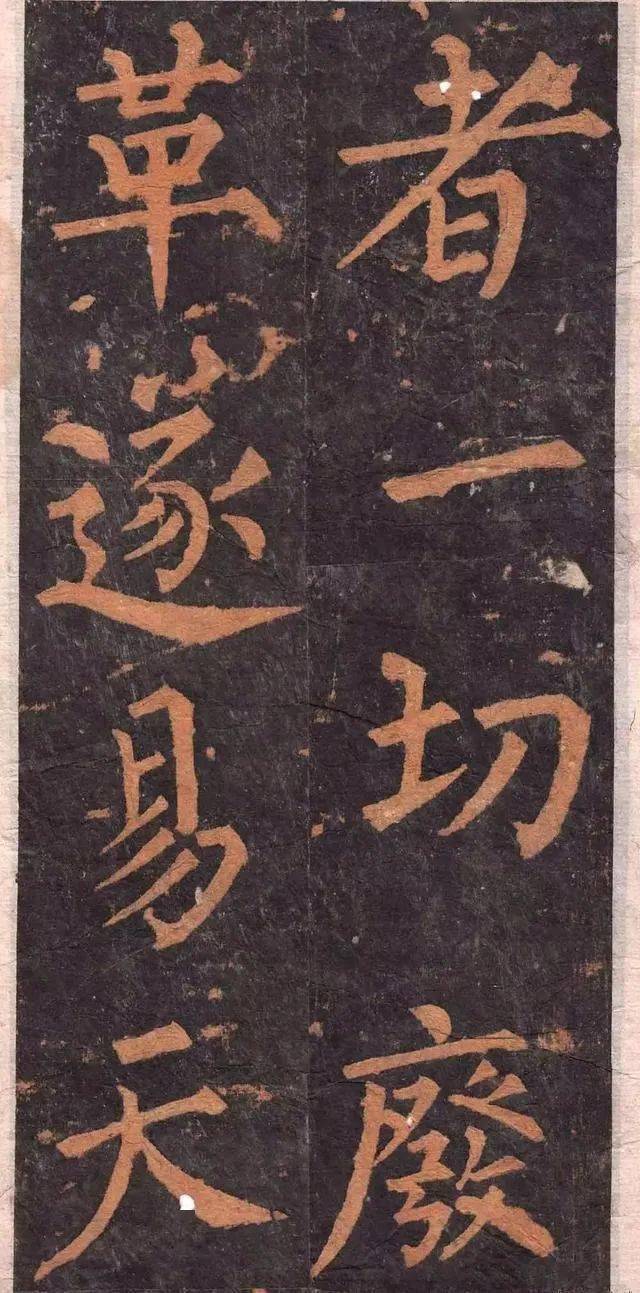 者一切廢
革遂易天